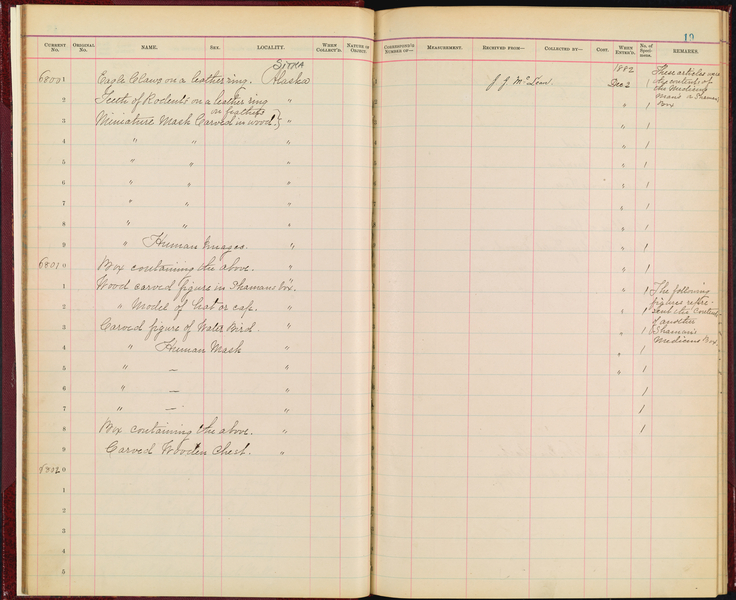 CURRENT No. ORIGINAL No. NAME. SEX. LOCALITY. WHEN COLLECT'D. NATURE OF OBJECT. CORRESPOND'G NUMBER OF— MEASUREMENT. RECEIVED FROM— COLLECTED BY— COST. WHEN ENTER'D. No. of Specimens. REMARKS.
SITKA
1882
68001 Eagle Claws on a leather ring. Alaska J J Mc Lean Dec 2 1 These articles were the contents of the Medicine Man's or Shaman's Box
2 Teeth of Rodents on a leather ring " " 1
on feathers
3 Miniature Mask Carved in wood.} " " 1
4 " " " " 1
5 " " " " 1
6 " " " " 1
7 " " " " 1
8 " " " " 1
9 " Human Images. " " 1
68010 Box containing the above. " " 1
1 Wood carved figure in Shamans box. " " 1 The following figures represent the contents of another Shaman's Medicine Box.
2 " Model of hat or cap. " " 1
3 Carved figure of Water Bird. " " 1
4 " Human Mask " " 1
5 " — " " 1
6 " — " 1
7 " — " 1
8 Box containing the above. " 1
9 Carved Wooden Chest. "
68020
1
2
3
4
5